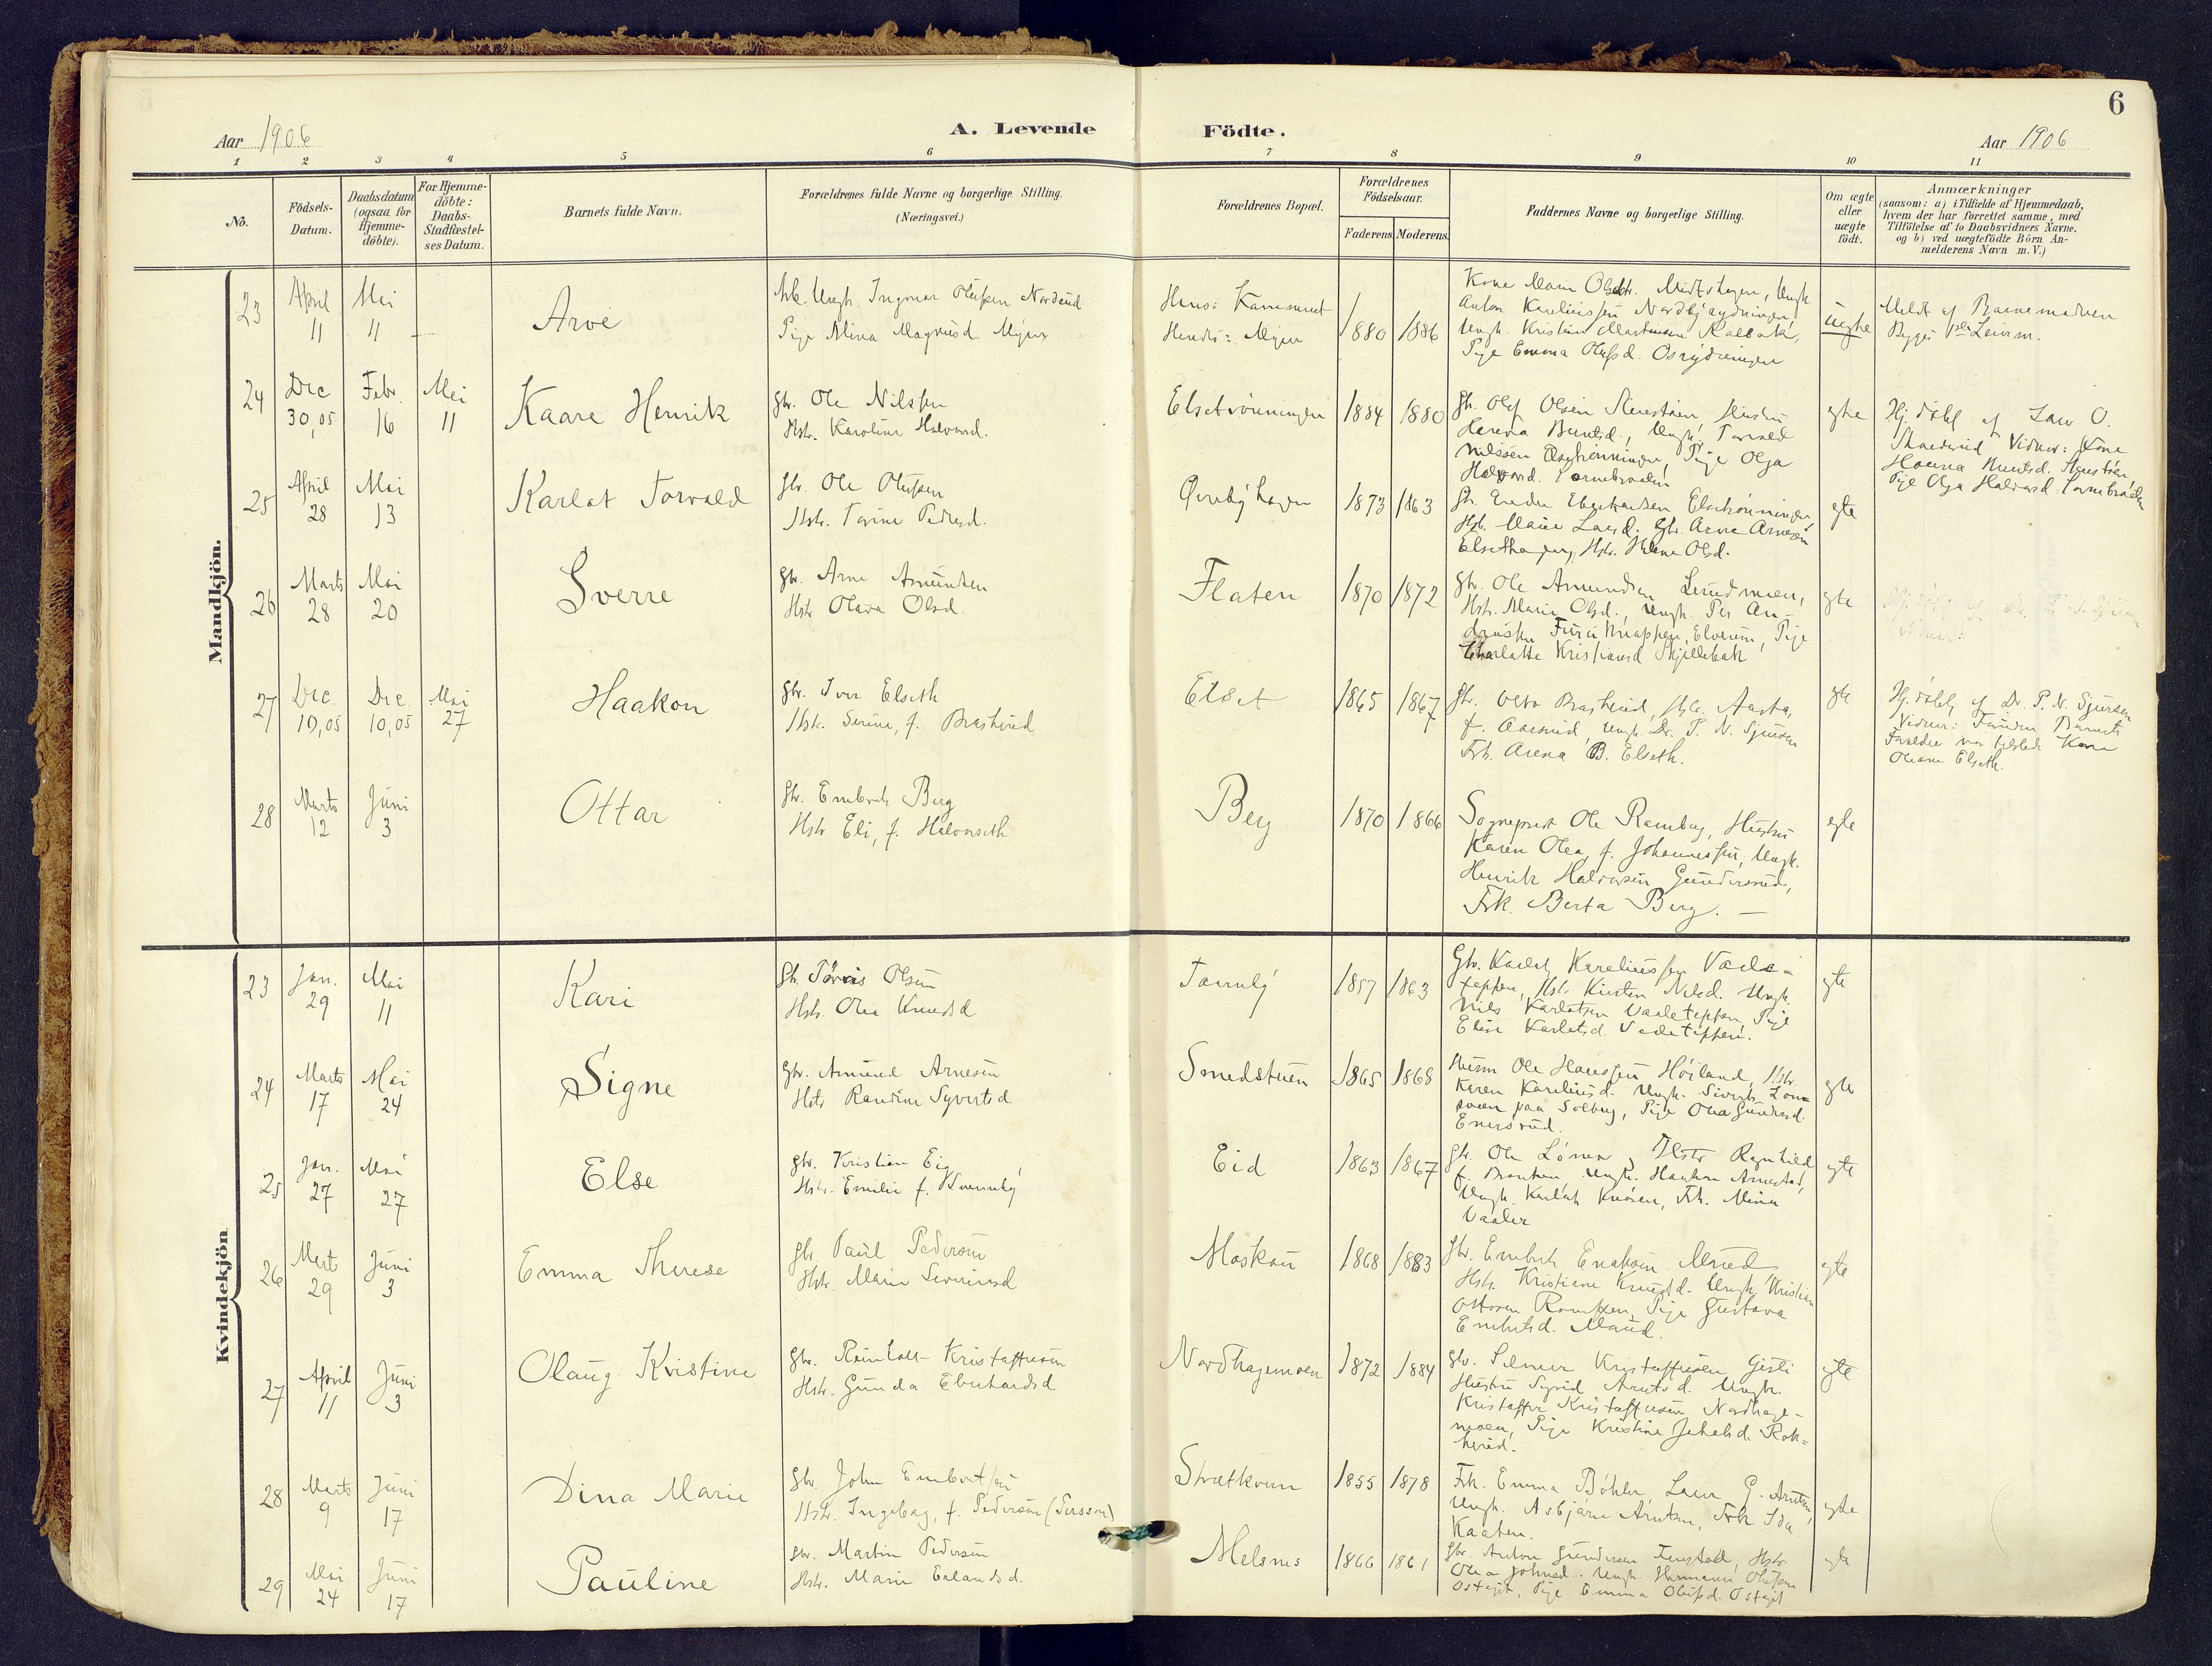 6
Aar 1906
A. Levende
Födte.
Aar 1906
1 2 3 4 5 6 7 8 9 10 11
No.
Födsels-
Datum.
Daabsdatum
(ogsaa for
Hjemme-
döbte).
For Hjemme-
döbte:
Daabs-
Stadfæstel-
ses Datum.
Barnets fulde Navn.
Forældrenes fulde Navne og borgerlige Stilling.
(Næringsvei.)
Forældrenes Bopæl.
Forældrenes
Födselsaar.
Faderens
Moderens
Faddernes Navne og borgerlige Stilling.
Om ægte
eller
uægte
födt.
Anmærkninger
(saasom: a) i Tilfælde af Hjemmedaab,
hvem der har forrettet samme, med
Tilföielse af to Daabsvidners Navne.
og b) ved uægtefödte Börn An-
melderens Navn m. V.)
Mandkjön.
23
April
11
Mai
11
Arve
Arb. Ungk. Ingmar Olufsen Nordsud
Pige Mina Magnusd. Myren
Hans:
Hendes: Myren
1880
1886
Kone Maren Olsdtr. Midtskogen, Ungk
Anton Kareliussen Nordbyrydningen,
Ungk. Kristian Martinsen Kalbak,
Pige Emma Olufsd. Osrydningen
uegte
Meldt af Barnemoderen
24
Dec
30,05
Febr.
16
Mai
11
Kaare Henrik
Gbr. Ole Nilssen
Hstr. Karoline Halvorsd.
Elsetrönningen
1884
1880
Gb. Olof Olsen Stenstöen, Hustru
Berntsd., Ungk. Torvald
Nilssen Elsetrönningen, Pige Olga
Halvorsd. Tornebraaten
egte
Hj. döbt af Lars O.
Vidner: Kone
Knutsd. Stenstöen
Pige Olga Halvorsd. Tornebraaten
25
April
28
Mai
13
Karlot Torvald
Gbr. Ole Olufsen
Hstr. Torine Pedersd.
Överbyhagen
1873
1863
Gb. Eberhardsen Elsetrönningen,
Hstr. Marie Larsd. Gbr. Arne Arnesen
Elsethagen, Hstr. Helene Olsd.
egte
26
Marts
28
Mai
20
Sverre
Gbr. Arne Amundsen
Hstr Olava Olsd.
Flaten
1870
1872
Gbr. Ole Amundsen Lundmoen,
Hstr. Marie Olsd., Ungk. Per An-
dersen Furuknappen, Elverum, Pige
Charlotte Kristiansd Skjellebak
egte
27
Dec.
10,05
Dec.
10,05
Mai
27
Haakon
Gbr. Iver Elseth
Hstr. Serine, f. Braskerud
Elset
1865
1867
Gbr. Otto Braskerud, Hstr. Aasta,
f. Aasrud, Ungk. Dr. P. N. Sjursen
Frk. Arena B. Elseth.
egte
Hj. döbt af Dr. P. N. Sjursen
Vidner: Barnets
Forældre var tilstede Kone
Oleane Elseth.
28
Marts
12
Juni
3
Ottar
Gbr. Embret Berg
Hstr Eli, f. Halvorseth
Berg
1870
1866
Sogneprest Ole Ramberg, Hustru
Karen Olea, f. Johannessen, Ungk.
Henrik Halvorsen Gundersrud,
Frk. Berta Berg. —
egte
Kvindekjön
23
Jan.
29
Mai
11
Kari
Gb. Törris Olsen
Hstr. Olea Knudsd
Tornby
1857
1863
Gbr. Karlot Kareliussen Vaale-
teppen, Hstr. Kirsten Nilsd. Ungk.
Nils Karlotsen Vaaleteppen, Pige
Elise Karlotsd. Vaaleteppen.
egte
24
Marts
17
Mai
24
Signe
Gbr. Amund Arnesen
Hstr Randine Syvertsd
Smedstuen
1865
1868
Husm. Ole Hanssen Höiland, Hstr.
Karen Kareliusd. Ungk. Sivert
paa Solberg, Pige Olea Gundersd.
Enersrud.
egte
25
Jan.
27
Mai
27
Else
Gbr. Kristian Eid
Hstr. Emilie f. Kvenneby
Eid
1863
1867
Gbr. Ole Lömo, Hstr Ragnhild
f. Ungk. Haakon Arnestad,
Ungk. Karlot Frk. Mina
Vaaler
egte
26
Marts
29
Juni
3
Emma Therese
Gbr. Paul Pedersen
Hstr. Marie Severinsd
Moskau
1868
1883
Gbr. Embret Eriksen Moud
Hstr. Kristiane Knudsd. Ungk. Kristian
Ottosen Pige Gustava
Embretsd. Moud.
egte
27
April
11
Juni
3
Olaug Kristine
Gbr. Reinholt Kristoffersen
Hstr. Gunda Eberhardsd
Nordhagemoen
1872
1884
Gbr. Kristoffersen
Hustru Sigrid Arntsd. Ungk.
Kristoffer Kristoffersen Nordhage-
moen, Pige Kristine Jakobsd. Rok-
herud.
egte
28
Marts
9
Juni
17
Dina Marie
Gbr. John Embretsen
Hstr. Ingeborg, f. Pedersen (Persson)
Strætkvern
1855
1878
Frk. Emma Böhler, Lærer G. Arntsen,
Ungk. Asbjörn Arntsen, Frk Ida
Kaaten.
egte
29
Mai
24
Juni
17
Pauline
Gbr. Martin Pedersen
Hstr. Marie Erlandsd.
Melsnes
1866
1861
Gbr. Anton Gundersen Hstr.
Olea Johnsd. Ungk. Hermann Olufsen
Pige Emma Olufsd.
egte